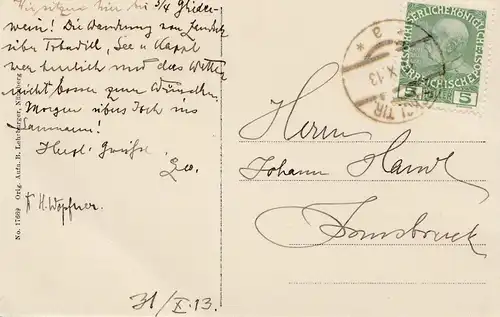 Wir sitzen hier bei 3/4 Glieder
wein! Die Wanderung von Landeck
über Tobadill, See u Kappl
war herrlich und das Wetter
nicht besser zum Wünschen.
Morgen übers Joch ins
Herzl. Grüße
Leo.
H. Wopfner.
31/X.13.
No. 17669 Orig. Aufn. B. Lehrburger, Nürnberg
KAISERLICHEKÖNIGLICHE
ÖSTERREICHISCHE
5 5
TIR
X 13
* a *
Herrn
Johann
Innsbruck